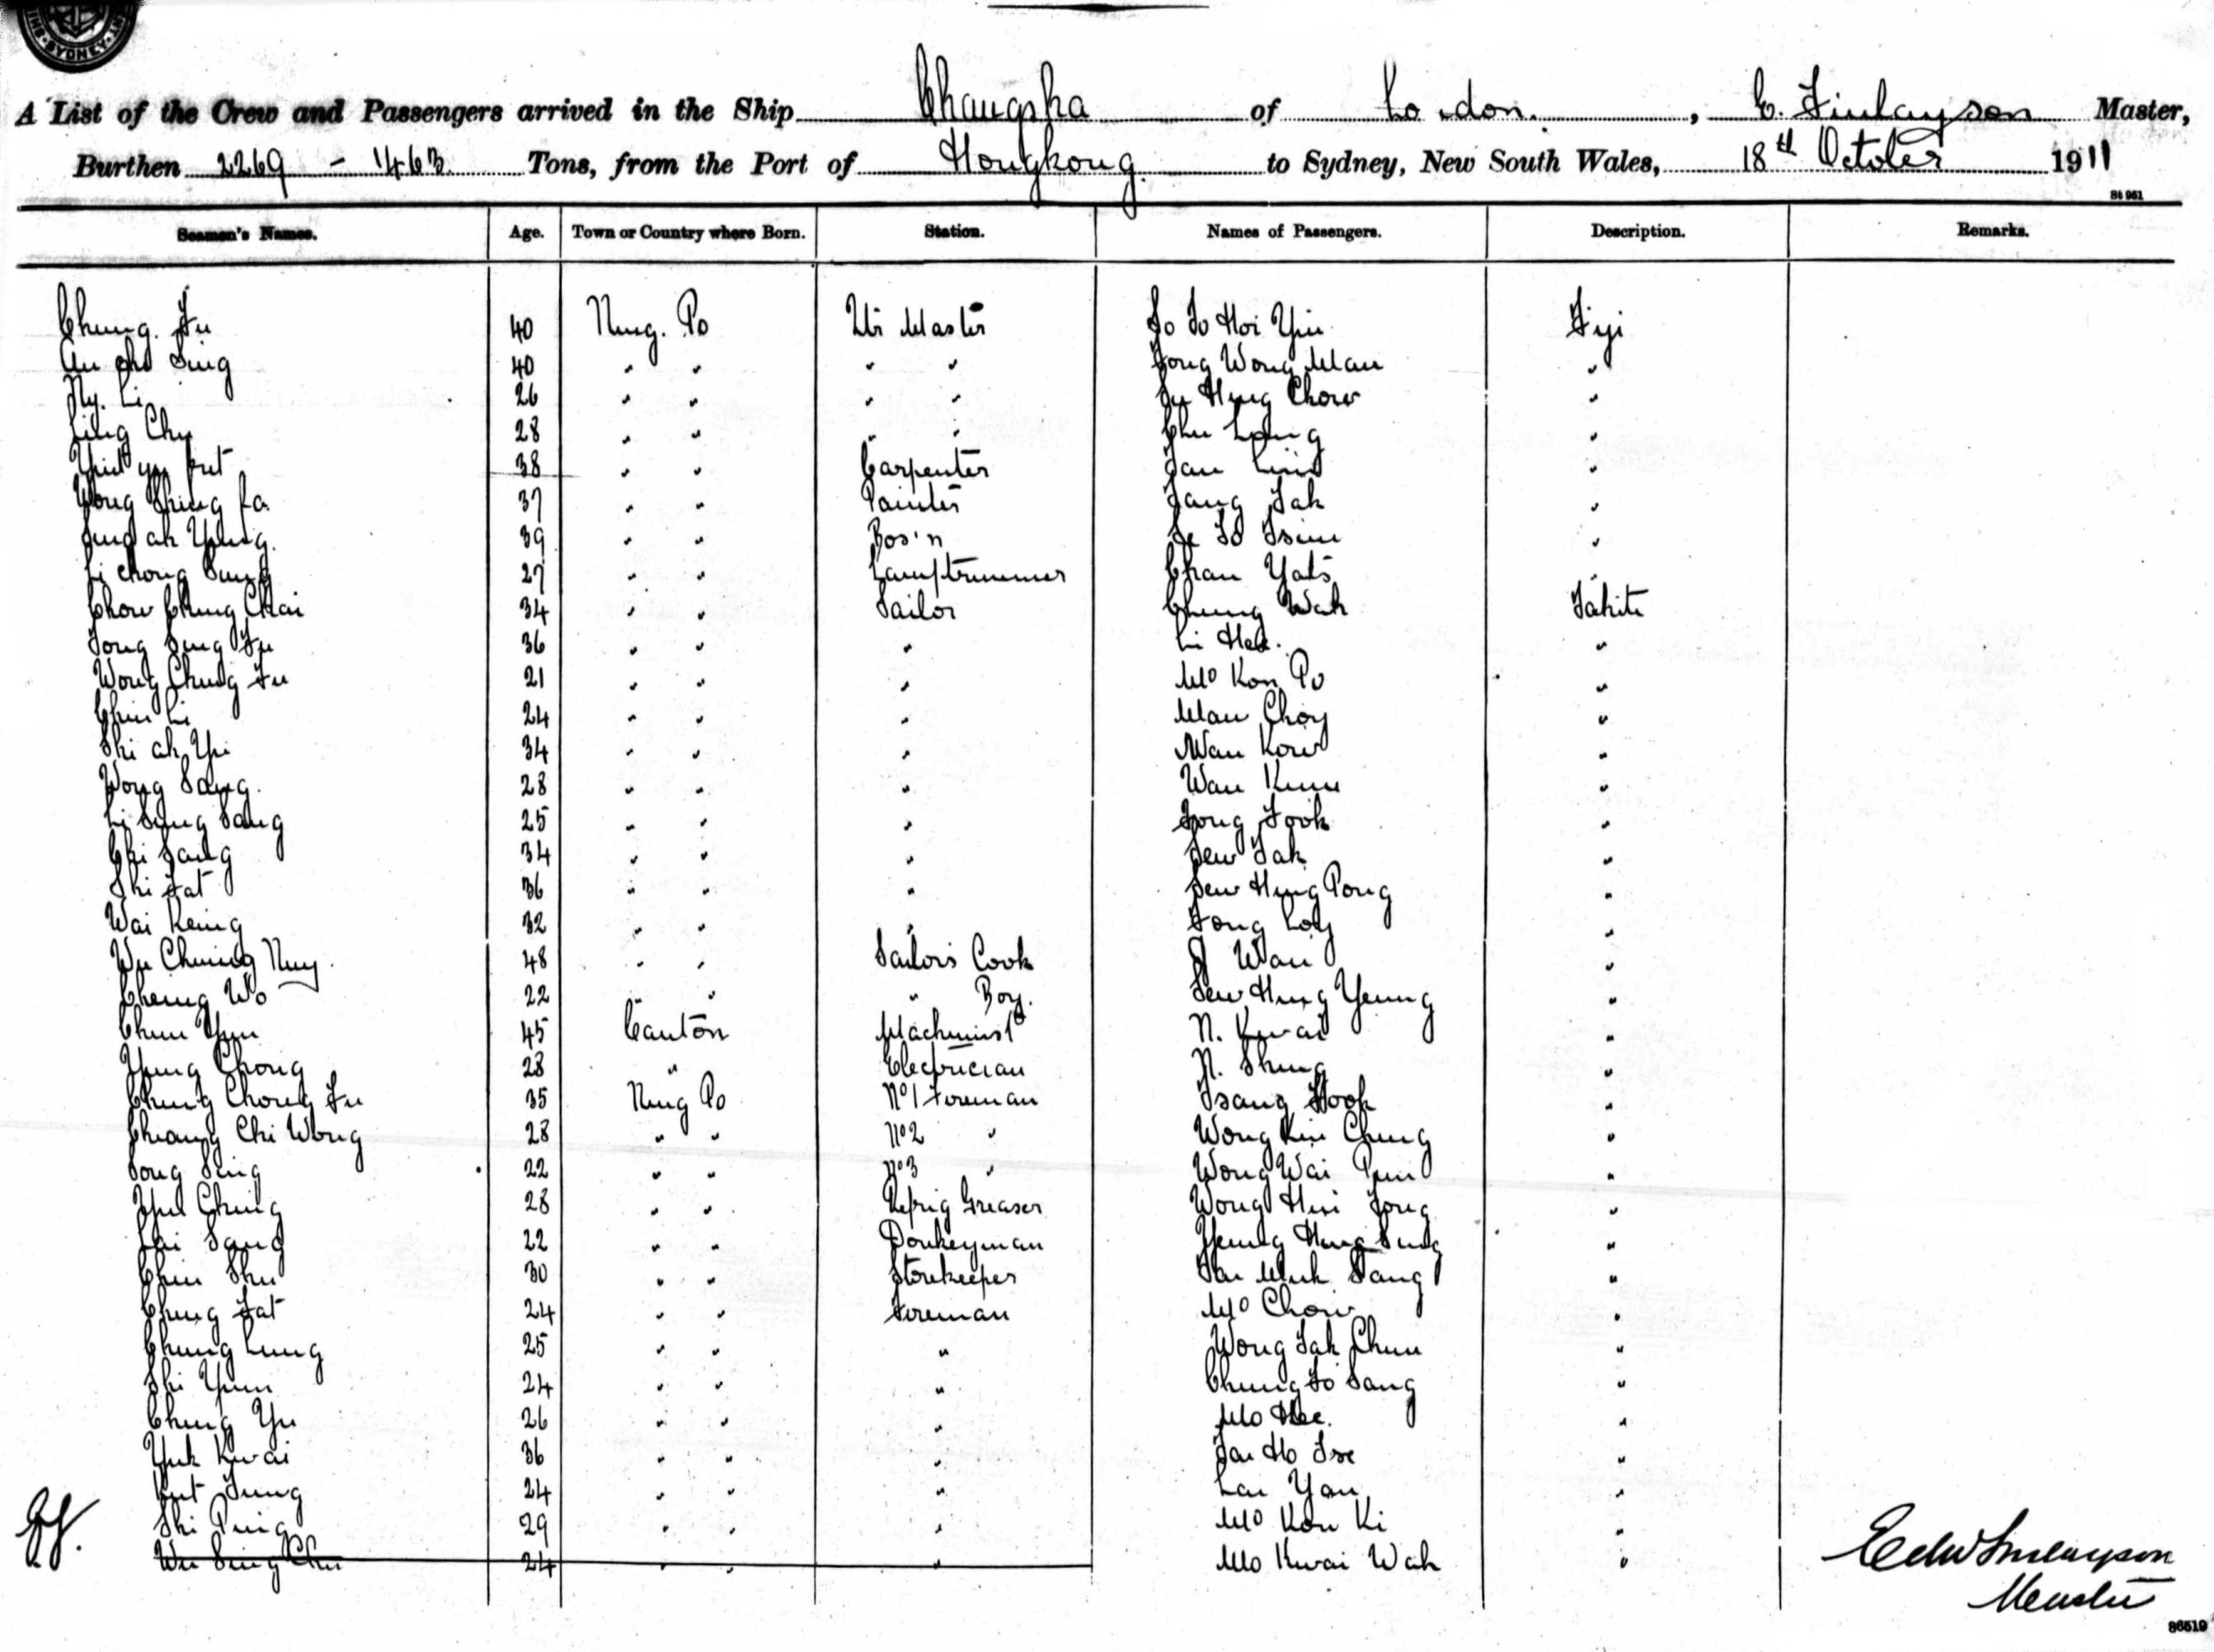 SYDNEY
A List of the Crew and Passengers arrived in the Ship Changsha of London, E. Finlayson Master,
Burthen 2269 - 1463 Tons, from the Port of Hongkong to Sydney, New South Wales, 18th October 1911
St 961
Seamen's Names. Age. Town or Country where Born. Station. Names of Passengers. Description. Remarks.
Chung Fu 40 Ning. Po Qr Master So So Hoi Yin Fiji
Au Sing 40 " " " " Fong Wong Man "
Ny. Li 26 " " " " Su Hing Chow "
Ling Chu 28 " " " " Chu Long "
38 " " Carpenter Tau "
Wong Shing Fa 37 " " Painter Fang Tak "
Sung ah Yung 39 " " Bos'n Se To Tsim "
Li chong Sung 27 " " Lamptrimmer Chan Yat "
Chow Chung Chai 34 " " Sailor Chung Wah Tahiti
Song Sing Fu 36 " " " Li Hee. "
Wong Chung Fu 21 " " " Mo Kon Po "
Chin Li 24 " " " Mau Choy "
Shi ah Yu 34 " " " Wan Kow "
Wong Sang 28 " " " Wan Kum "
Li Sung Sang 25 " " " Fong Fook "
Chi Sang 34 " " " Sew Tak "
Shi Fat 36 " " " Sew Hing Pong "
Wai Keing 32 " " " Fong Loy "
Wu Chuing Nuy 48 " " Sailors Cook Wan "
Cheung Wo 22 " " " Boy. Sew Hing Yeung "
Chun Yun 45 Canton Machinist N. Kwai "
Yung Chong 28 " Electrician N. Shing "
Chung Chong Fu 35 Ning Po No 1 Foreman Tsang Hook "
Chiang Chi Wong 28 " " No 2 " Wong Kin Chung "
Song Sing 22 " " No 3 " Wong Wai Pun "
Yul Ching 28 " " Refrig Greaser Wong Hin Fong "
Lai Sang 22 " " Donkeyman Yeung Hing Sung "
Chin Shu 30 " " Storekeeper Tai Muk Tang "
Chung Fat 24 " " Foreman Mo Chow "
Chung Lung 25 " " " Wong Tak Chun "
Shi Yun 24 " " " Chung Fo Sang "
Chung Yu 26 " " " Mo Hee. "
Yuk Kwai 36 " " " Tai Ho Tse "
Kut Fung 24 " " " Lai Yau "
Shi Ping 29 " " " Mo Kon Ki "
Wu Sing Chu 24 " " " Mo Kwai Wah "
Edw Finlayson
Master
86519